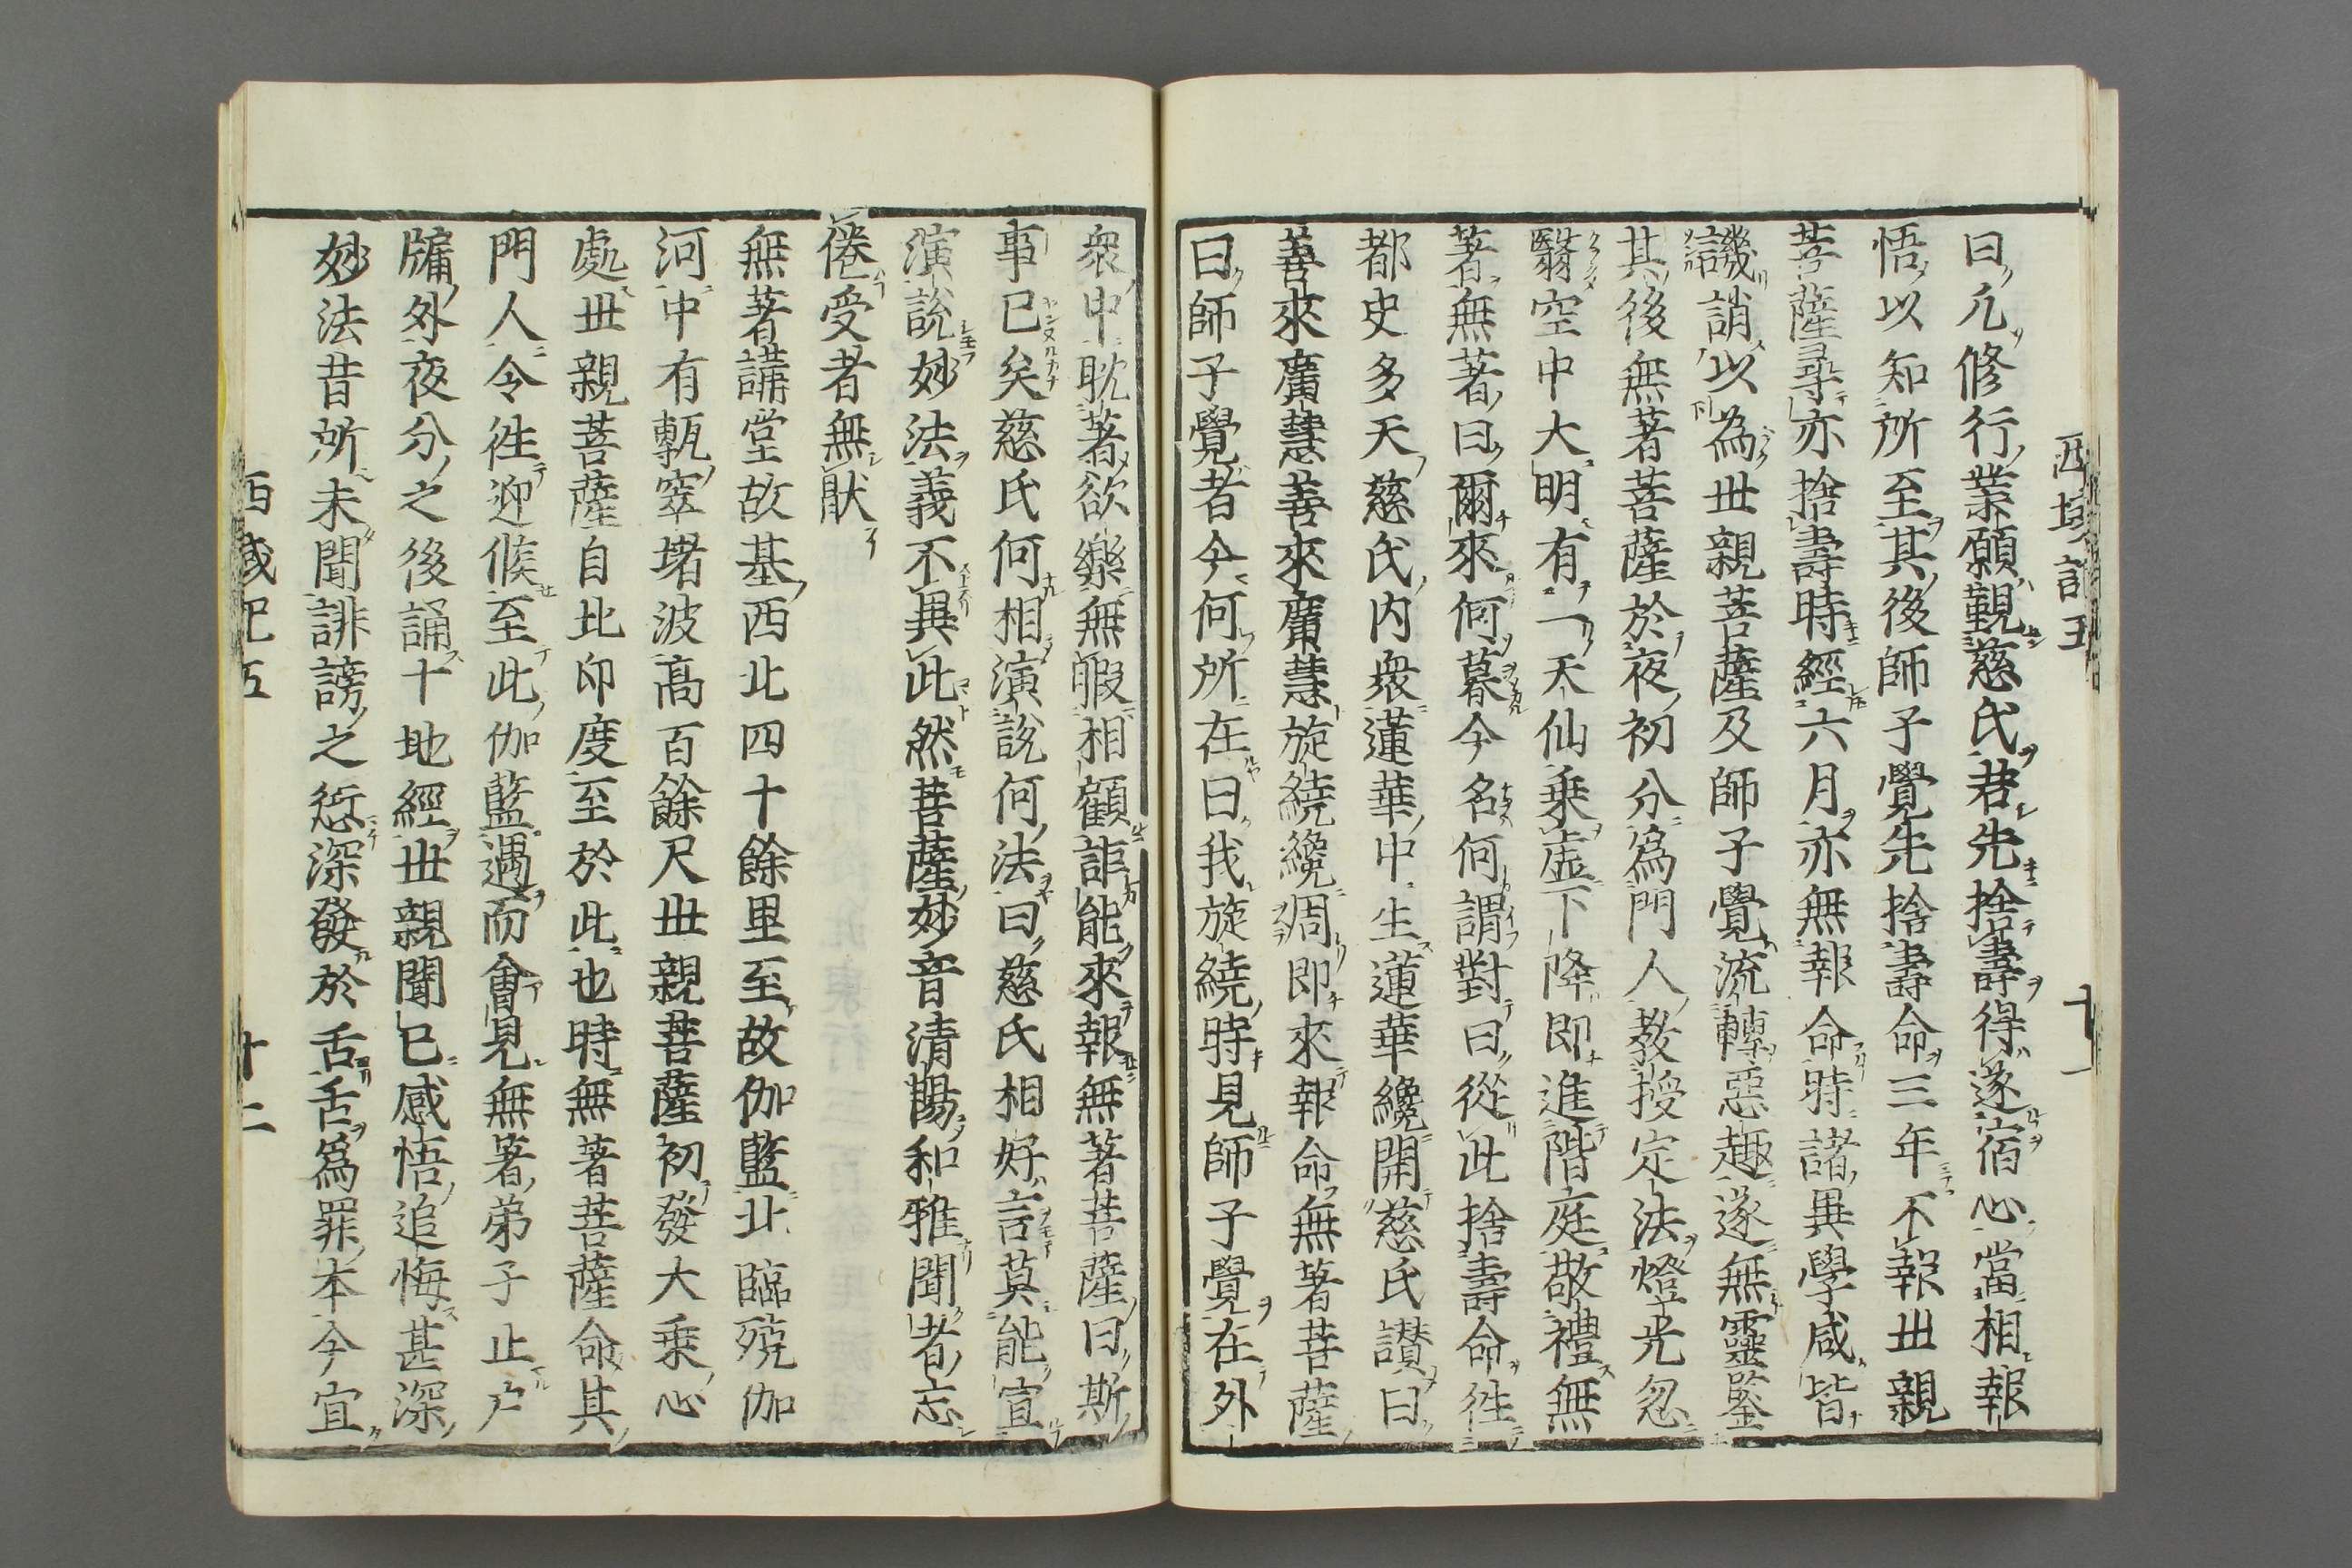 西域記五　十一
曰凢修行業願覲慈氏若先捨壽得遂宿心當相報
悟以知所至其後師子覺先捨壽命三年不報世親
菩薩尋亦捨壽時經六月亦無報命時諸異學咸皆
譏誚以為世親菩薩及師子覺流轉惡趣遂無靈鑒
其後無著菩薩於夜初分爲門人教授定法燈光忽
翳空中大明有一天仙乘虛下降即進階庭敬禮無
著無著曰爾來何暮今名何謂對曰從此捨壽命徃
都史多天慈氏内衆蓮華中生蓮華纔開慈氏讃曰
善來廣慧善來廣慧旋繞纔周即來報命無著菩薩
曰師子覺者今何所在曰我旋繞時見師子覺在外
衆中耽著欲樂無暇相顧詎能來報無著菩薩曰斯
事已矣慈氏何相演說何法曰慈氏相好言莫能宣
演說妙法義不異此然菩薩妙音清暢和雅聞者忘
倦受者無猒
無著講堂故基西北四十餘里至故伽藍北臨殑伽
河中有甎窣堵波高百餘尺世親菩薩初發大乘心
處世親菩薩自北印度至於此也時無著菩薩命其
門人令徃迎候至此伽藍遇而會見無著弟子止户
牖外夜分之後誦十地經世親聞已感悟追悔甚深
妙法昔所未聞誹謗之愆深發於舌舌爲罪本今宜
西域記五　十二